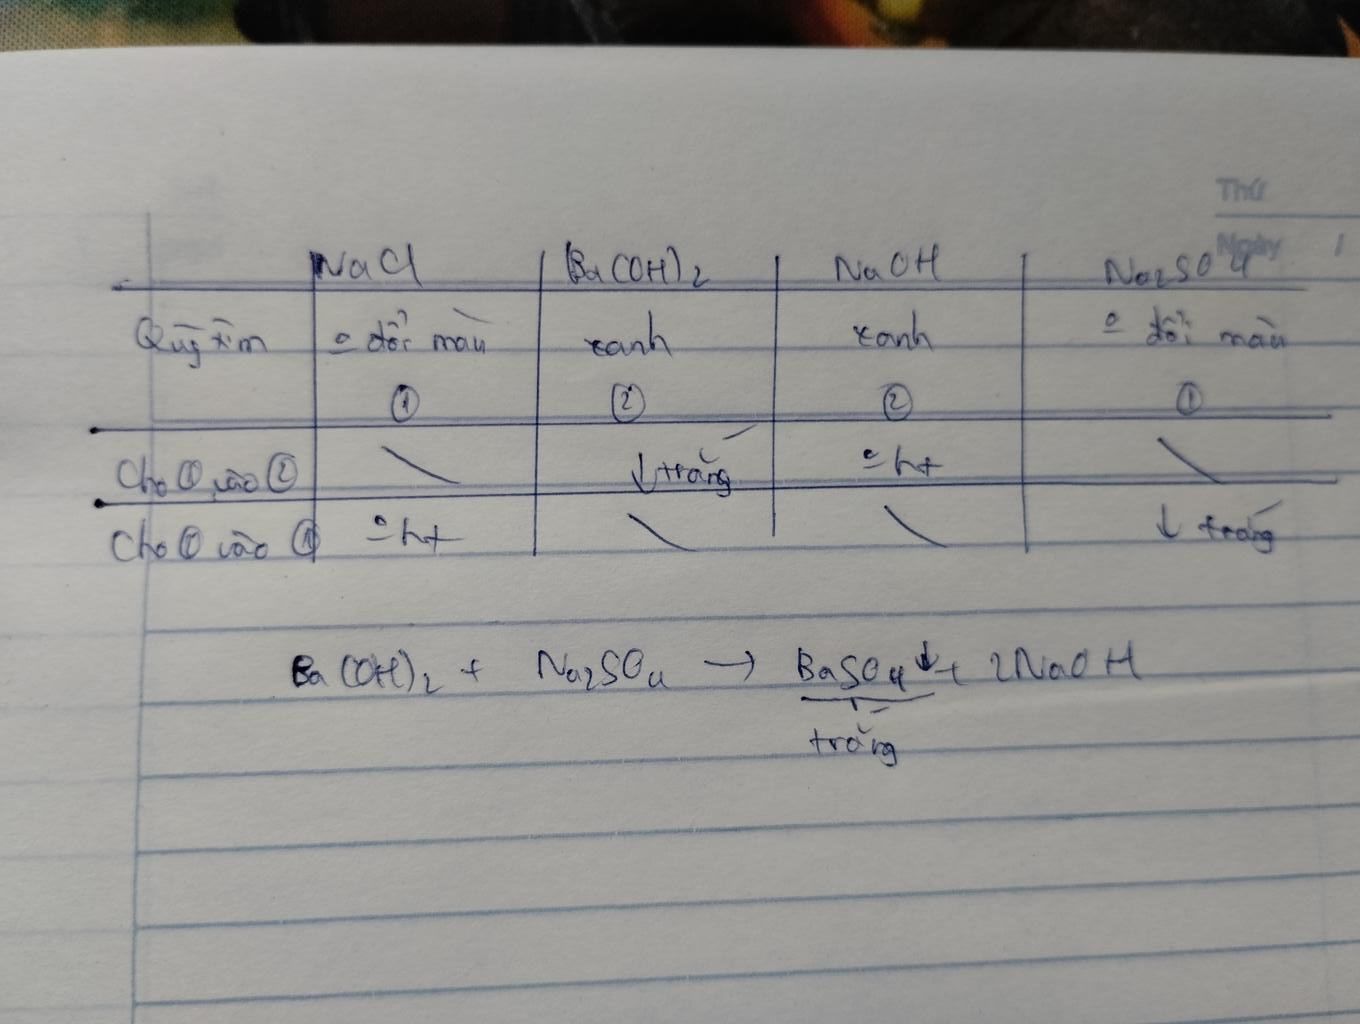 Thứ
Ngày
NaCl Ba(OH)2 NaOH Na2SO4
Quỳ tím o đổi màu xanh xanh o đổi màu
① ② ② ①
Cho ① vào ② \ ↓ trắng o ht \
Cho ① vào ① o ht \ \ ↓ trắng
Ba(OH)2 + Na2SO4 → BaSO4↓ + 2NaOH
trắng